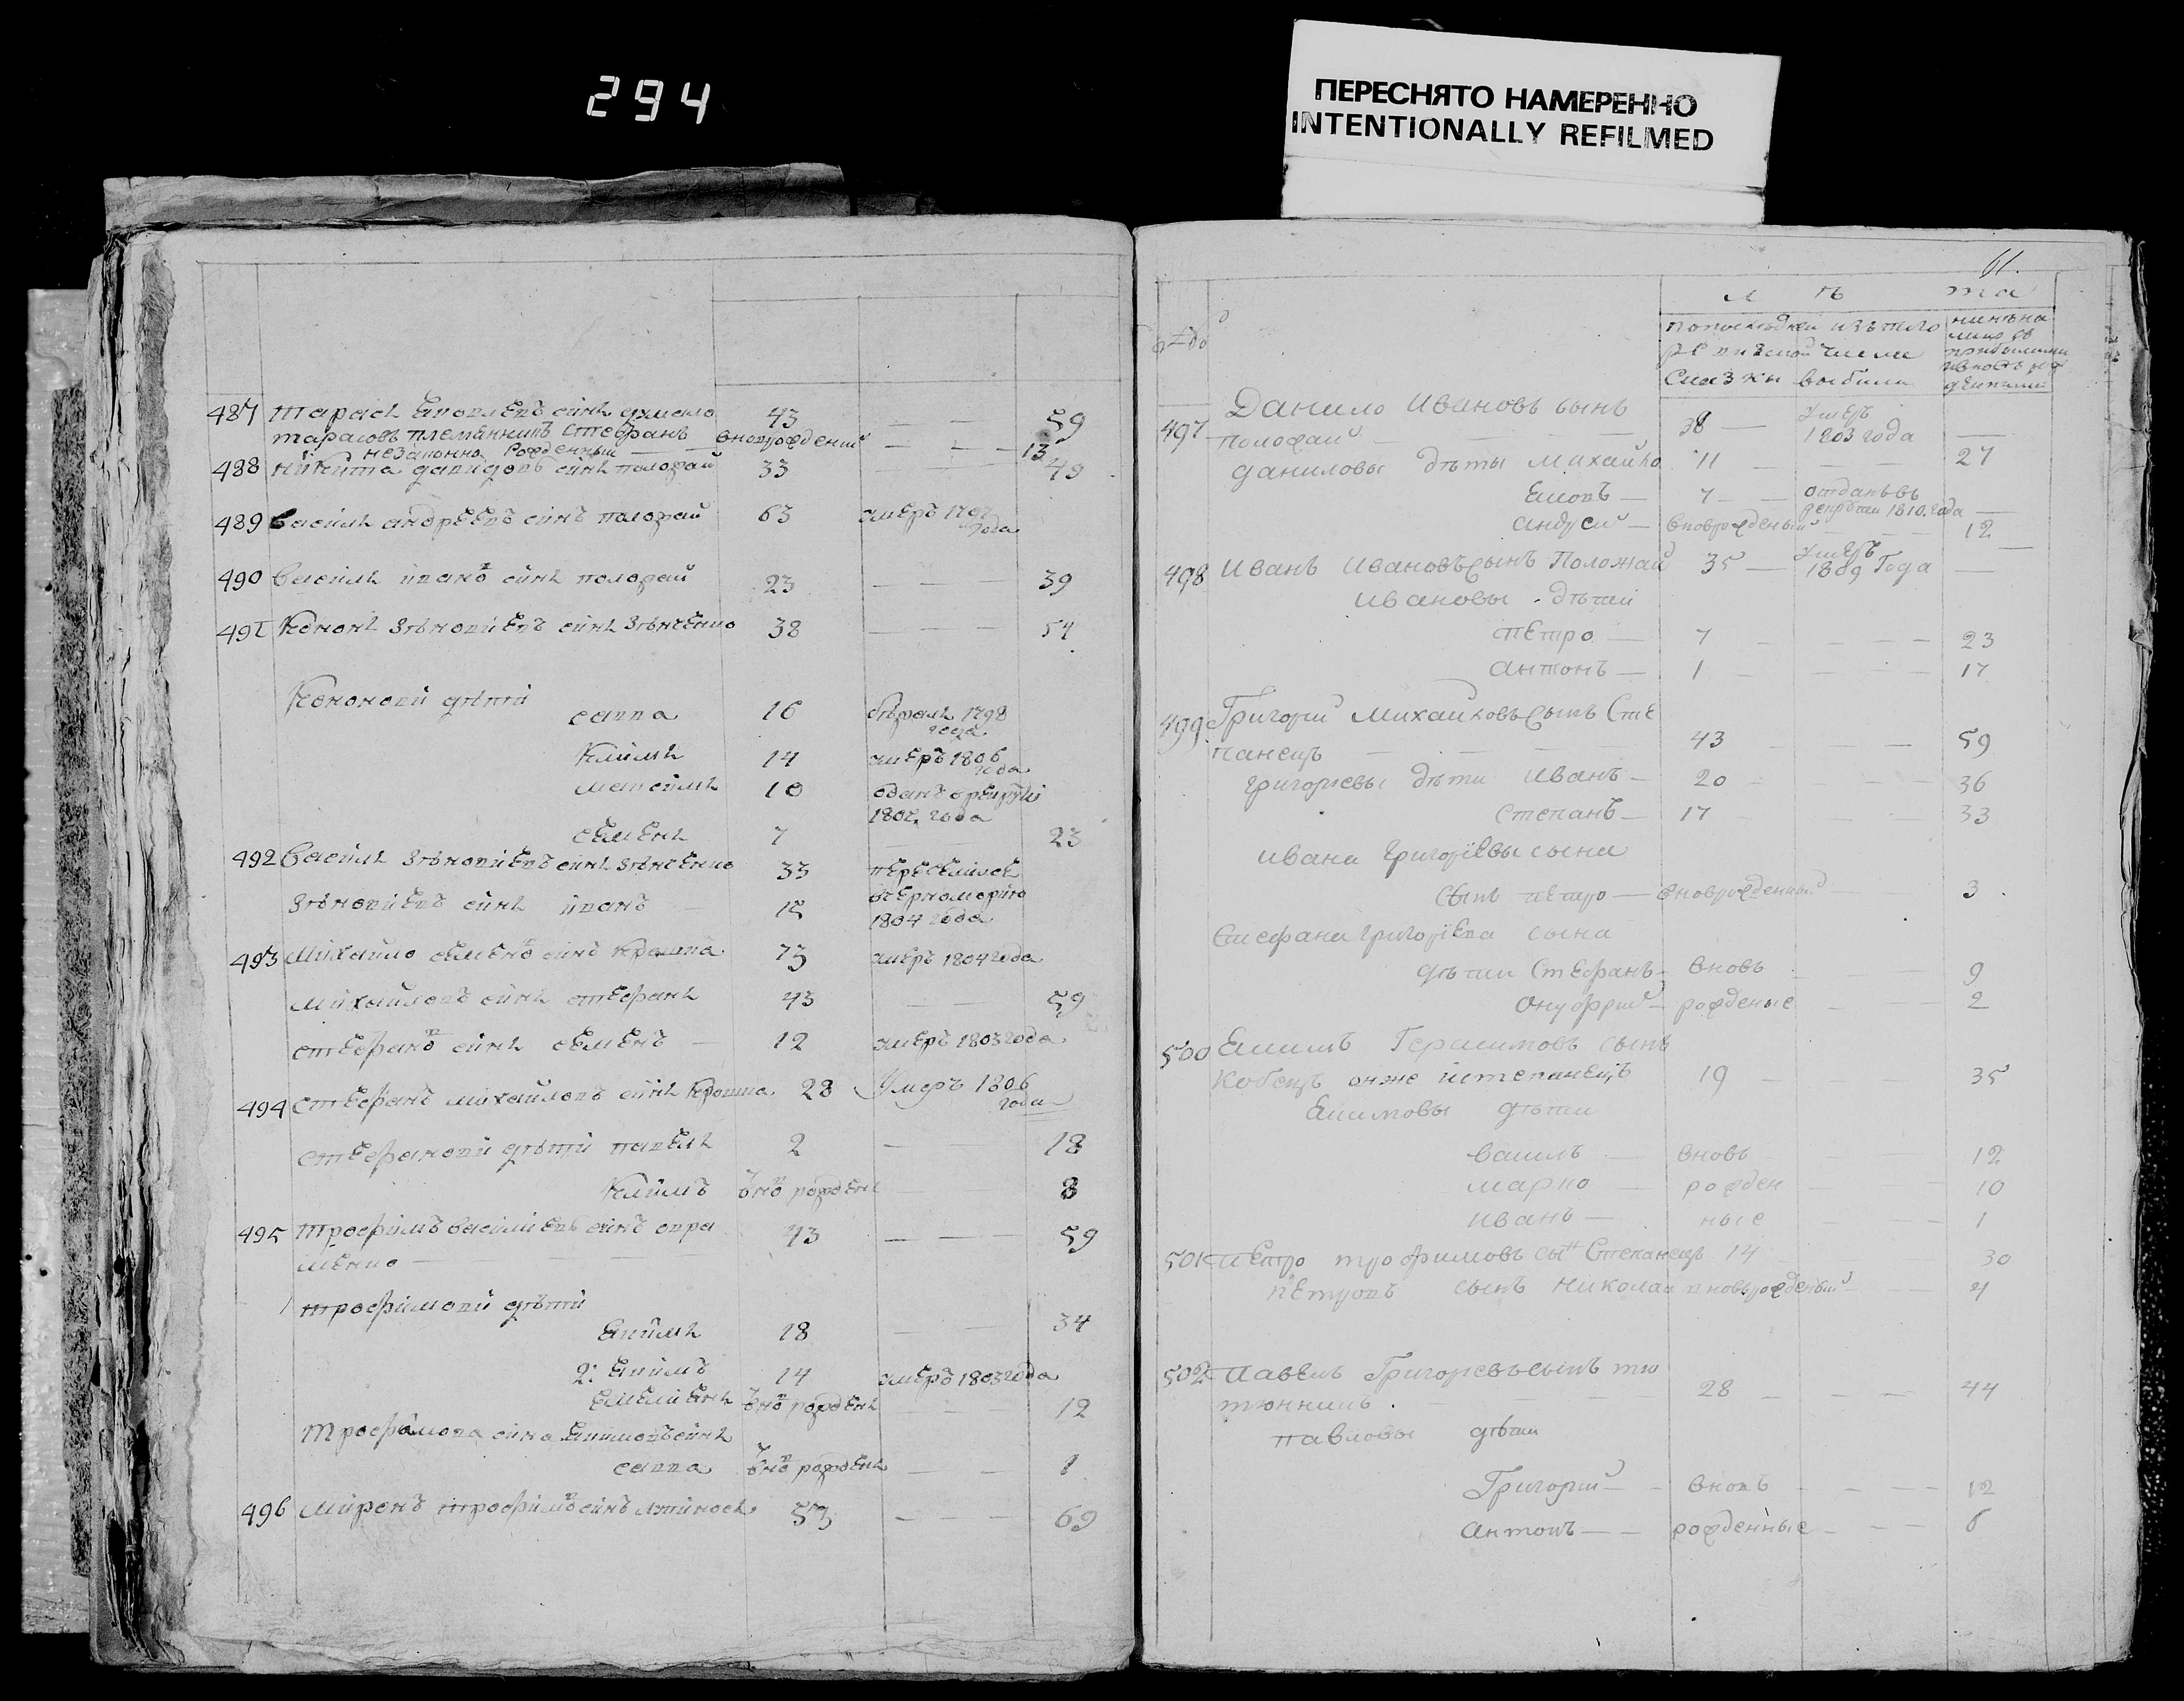 294
ПЕРЕСНЯТО НАМЕРЕННО
INTENTIONALLY REFILMED
487 Тарасъ сынъ 43 — — 59
тарасовъ племянникъ Стефанъ вноврожденный — — 13
незаконно рожденный
488 Никита давидовъ сынъ положай 33 — — 49
489 Василь андрѣевъ сынъ положай 63 умеръ 1797 года
490 Василь ивановъ сынъ положай 23 — — 39
491 Кононъ зѣновиевъ сынъ зѣнченко 38 — — 54
Кононови дѣти
савва 16 бѣжалъ 1798 года
Климъ 14 умеръ 1806 года
10
года
семенъ 7 — 23
492 Василь зѣновиевъ сынъ зѣнченко 33 переселился
зѣновиевъ сынъ иванъ — 15 вчерноморию
1804 года
493 Михайло семеновъ сынъ 73 умеръ 1804 года
михайловъ сынъ стефанъ 43 — — 59
стефановъ сынъ семенъ — 12 умеръ 1803 года
494 стефанъ михайловъ сынъ 28 Умеръ 1806 года
стефанови дѣти павелъ 2 — 18
Климъ вновъ рожденъ — — 8
495 Трофимъ василиевъ сынъ овра 43 — — 59
менко —
трофимови дѣти
екимъ 18 — — 34
2: екимъ 14 умеръ 1803 года
емелиянъ вновъ рожденъ — — 12
Трофимова сына екимовъ сынъ
савва вновъ рожденъ — — 1
496 Миронъ трофимовъ сынъ 53 — — 69
61.
л ѣ та
попослѣдней изътого нинѣна
ревизской числа лицо съ
сказки выбыли
497 Данило Ивановъ сынъ 38 — умеръ
положай — — 1803 года —
даниловы дѣты михайло 11 — — 27
7 — отданъ въ
рекруты 1810. года —
андрей — вноврожденый — — 12
498 Иванъ Ивановъ сынъ Положай 35 — умеръ
1809 Года —
Ивановы дѣти
петро — 7 — — 23
антонъ — 1 — — 17
499 Григорий Михайловъ сынъ Сте
панецъ — — 43 — — 59
григориевы дѣти Иванъ — 20 — — 36
степанъ — 17 — — 33
ивана григориевы сына
сынъ петро — вноврожденный — 3
Стефана григориева сына
дѣти Стефанъ — вновъ — 9
онуфрий — рожденые — 2
500 Екимъ Герасимовъ сынъ
Кобецъ онже истепанецъ 19 — 35
Екимовы дѣти
василь — вновъ — 12
марко — рожден — 10
иванъ — ные — 1
501 петро трофимовъ сынъ Степанецъ 14 — 30
петровъ сынъ николай вновърожденый — 4
502 Павелъ Григоревъ сынъ тю
тюнникъ . — 28 — — 44
павловы дѣти
Григорий — вновъ — — 12
антонъ — рожденные — — 8